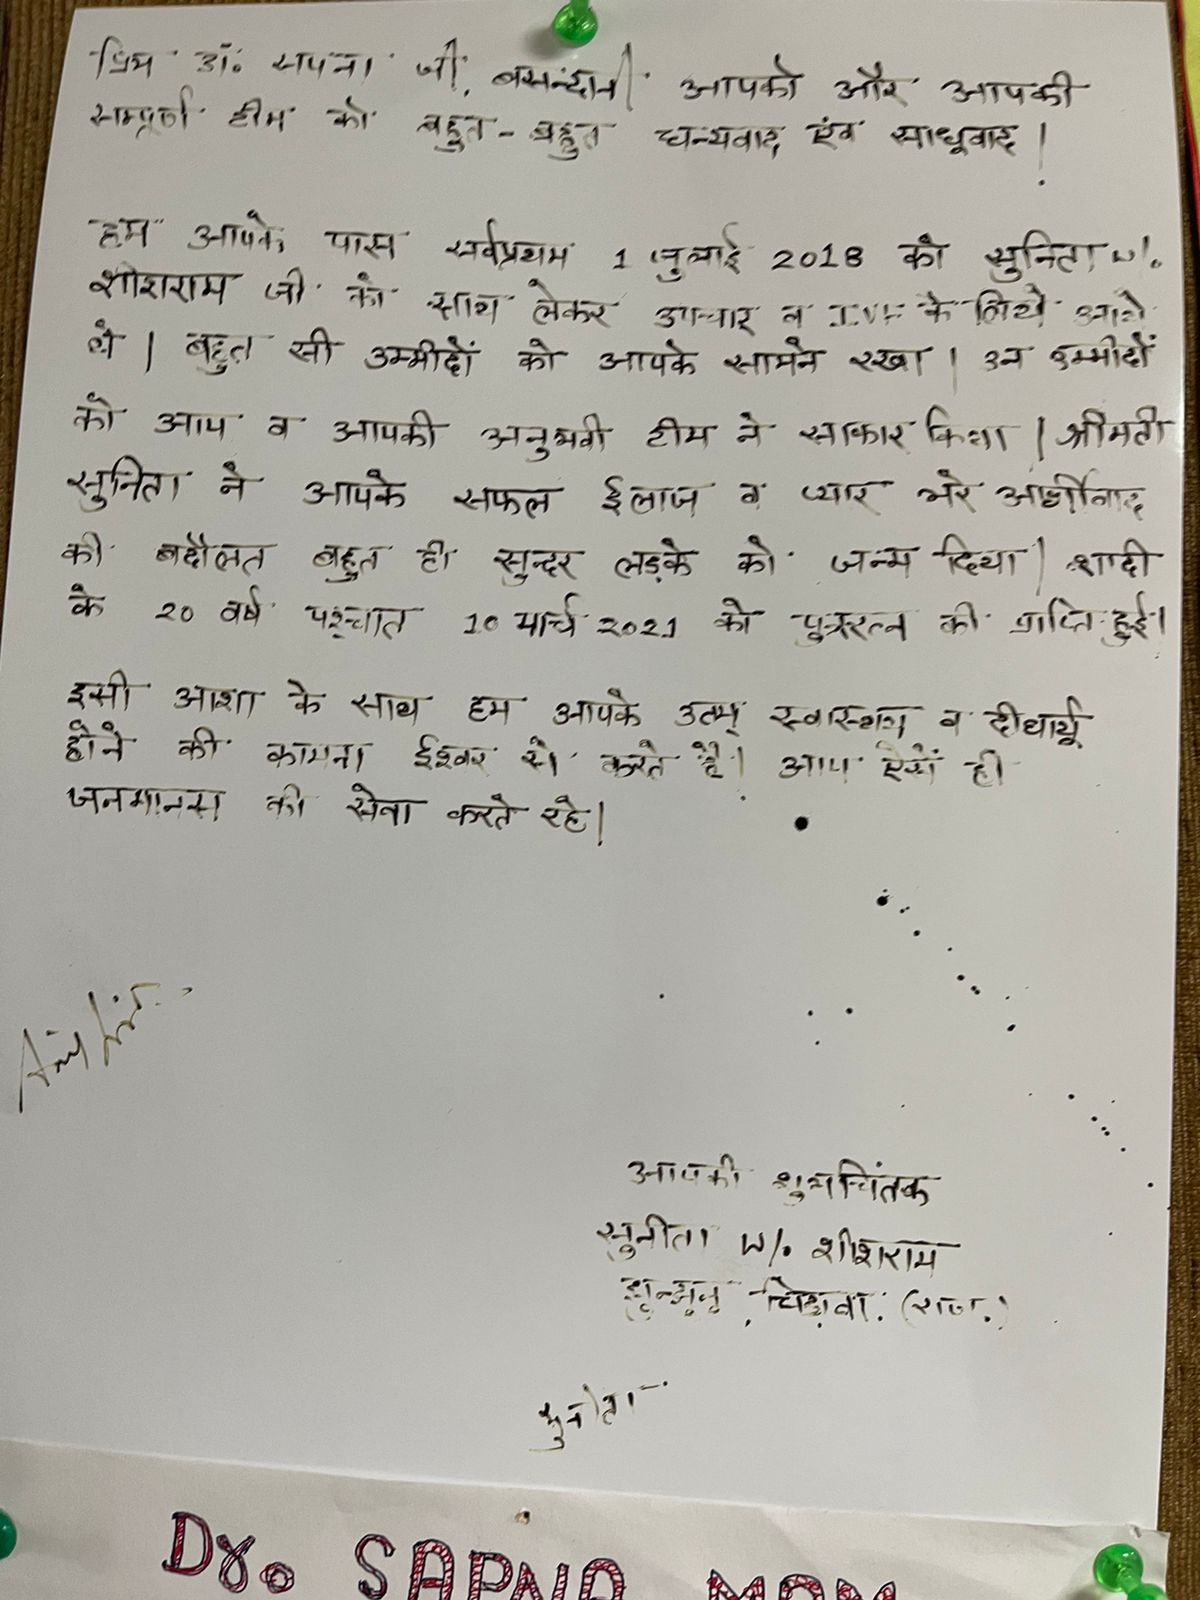 प्रिय डॉ. सपना जी, बसन्दानी आपको और आपकी
सम्पूर्ण टीम को बहुत-बहुत धन्यवाद एंव साधूवाद !
हम आपके पास सर्वप्रथम 1 जुलाई 2018 को सुनिता w/.
शीशराम जी को साथ लेकर उपचार व IVF के लिये आये
थे | बहुत सी उम्मीदों को आपके सामने रखा | उन उम्मीदों
को आप व आपकी अनुभवी टीम ने साकार किया | श्रीमती
सुनिता ने आपके सफल ईलाज व प्यार भरे आर्शीवाद
की बदौलत बहुत ही सुन्दर लड़के को जन्म दिया | शादी
के 20 वर्ष पश्चात 10 मार्च 2021 को पुत्ररत्न की प्राप्ति हुई।
इसी आशा के साथ हम आपके उतम् स्वास्थय व दीर्घायू
होने की कामना ईश्वर से करते है | आप ऐसे ही
जनमानस की सेवा करते रहे |
आपकी शुभचिंतक
सुनीता w/. शीशराम
झुन्झुनू, चिड़ावा. (राज.)
सुनीता
Dr. SAPNA MAM